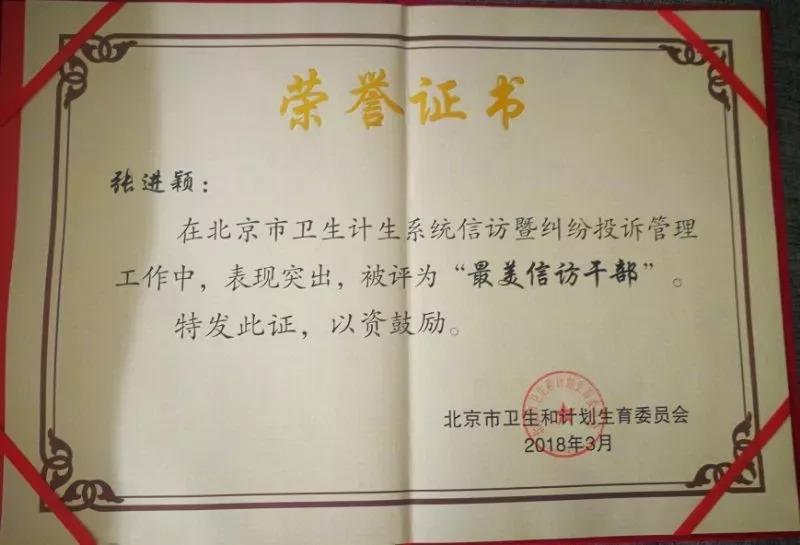 荣誉证书
张进颖：
在北京市卫生计生系统信访暨纠纷投诉管理
工作中，表现突出，被评为“最美信访干部”。
特发此证，以资鼓励。
北京市卫生和计划生育委员会
2018年3月